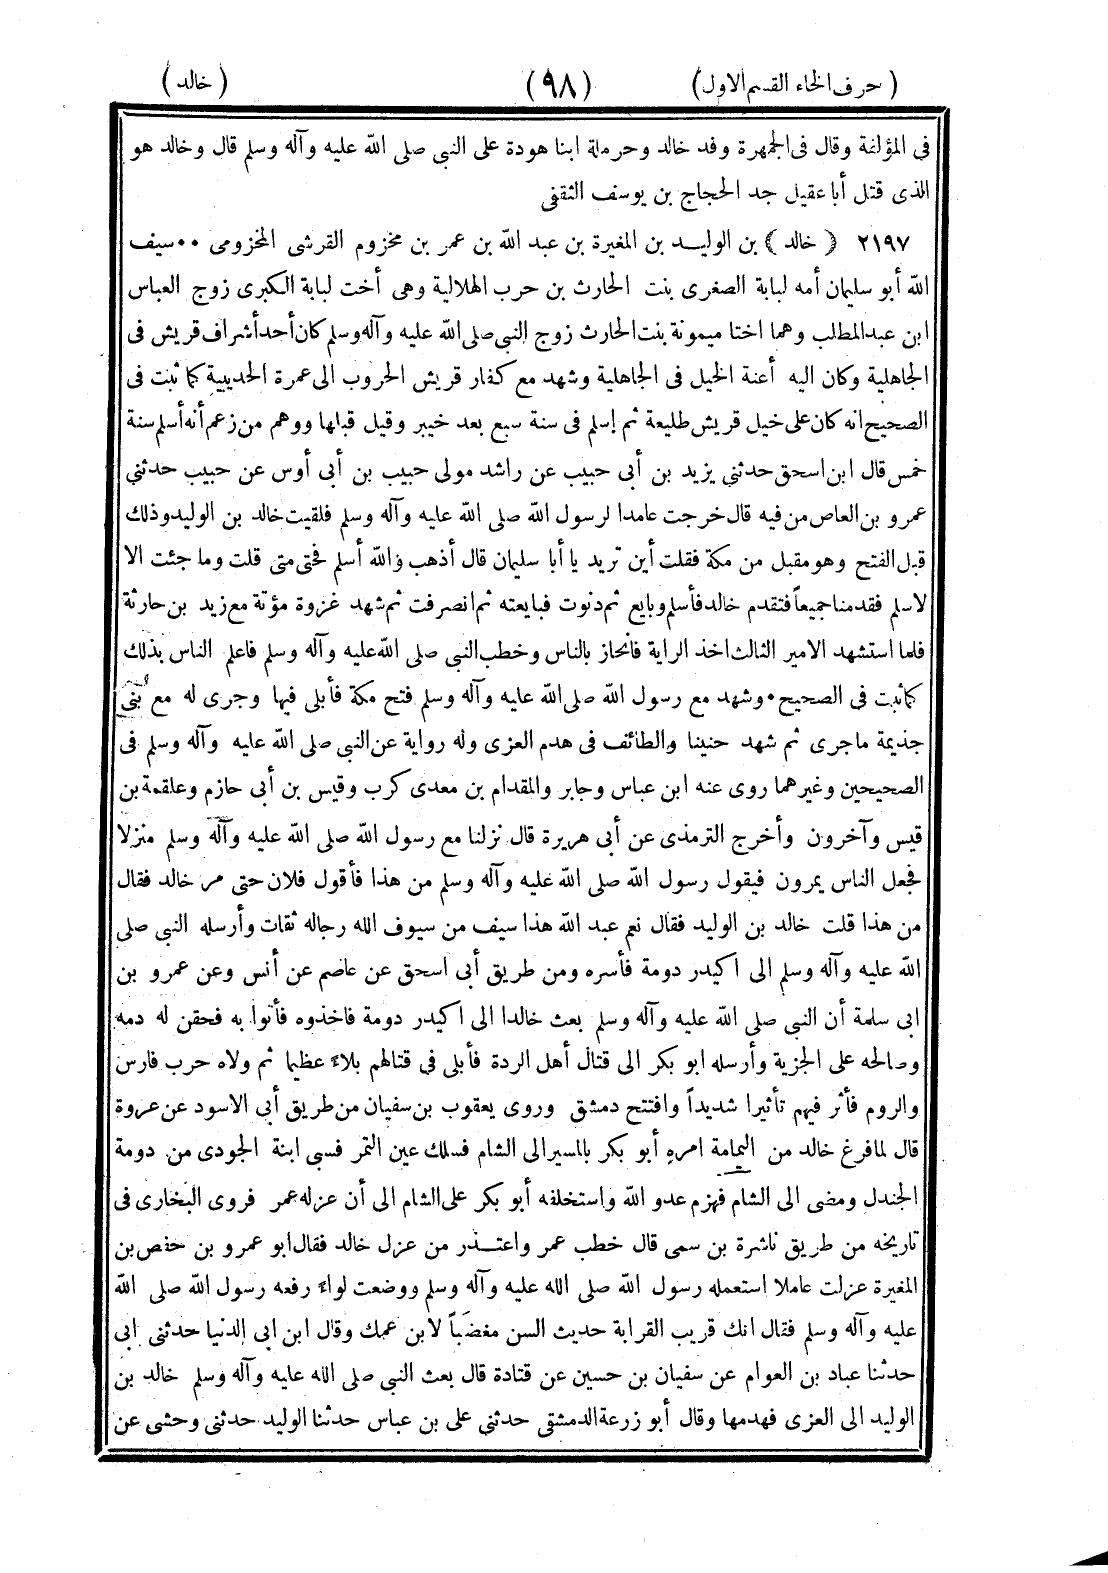 ( حرف الخاء القسم الاول) (٩٨) ( خالد )
فى المؤلفة وقال فى الجمهرة وفد خالد وحرملة ابنا هودة على النبى صلى الله عليه وآله وسلم قال وخالد هو
الذى قتل أبا عقيل جد الحجاج بن يوسف الثقفى
٢١٩٧ ﴿ خالد ﴾ بن الوليد بن المغيرة بن عبد الله بن عمر بن مخزوم القرشى المخزومى ٠٠ سيف
الله أبو سليمان أمه لبابة الصغرى بنت الحارث بن حرب الهلالية وهى أخت لبابة الكبرى زوج العباس
ابن عبد المطلب وهما اختا ميمونة بنت الحارث زوج النبى صلى الله عليه وآله وسلم كان أحد أشراف قريش فى
الجاهلية وكان اليه أعنة الخيل فى الجاهلية وشهد مع كفار قريش الحروب الى عمرة الحديبية كما ثبت فى
الصحيح انه كان على خيل قريش طليعة ثم إسلم فى سنة سبع بعد خيبر وقيل قبلها ووهم من زعم أنه أسلم سنة
خمس قال ابن اسحق حدثني يزيد بن أبى حبيب عن راشد مولى حبيب بن أبى أوس عن حبيب حدثني
عمرو بن العاص من فيه قال خرجت عامدا لرسول الله صلى الله عليه وآله وسلم فلقيت خالد بن الوليد وذلك
قبل الفتح وهو مقبل من مكة فقلت أين تريد يا أبا سليمان قال أذهب والله أسلم فحتى متى قلت وما جئت الا
لاسلم فقدمنا جميعاً فتقدم خالد فأسلم وبايع ثم دنوت فبايعته ثم انصرفت ثم شهد غزوة مؤتة مع زيد بن حارثة
فلما استشهد الامير الثالث اخذ الراية فانحاز بالناس وخطب النبى صلى الله عليه وآله وسلم فاعلم الناس بذلك
كما ثبت فى الصحيح ٠ وشهد مع رسول الله صلى الله عليه وآله وسلم فتح مكة فأبلى فيها وجرى له مع بنى
جذيمة ماجرى ثم شهد حنينا والطائف فى هدم العزى وله رواية عن النبى صلى الله عليه وآله وسلم فى
الصحيحين وغيرهما روى عنه ابن عباس وجابر والمقدام بن معدى كرب وقيس بن أبى حازم وعلقمة بن
قيس وآخرون وأخرج الترمذى عن أبى هريرة قال نزلنا مع رسول الله صلى الله عليه وآله وسلم منزلا
فجعل الناس يمرون فيقول رسول الله صلى الله عليه وآله وسلم من هذا فأقول فلان حتى مر خالد فقال
من هذا قلت خالد بن الوليد فقال نعم عبد الله هذا سيف من سيوف الله رجاله ثقات وأرسله النبى صلى
الله عليه وآله وسلم الى اكيدر دومة فأسره ومن طريق أبى اسحق عن عاصم عن أنس وعن عمرو بن
ابى سلمة أن النبى صلى الله عليه وآله وسلم بعث خالدا الى اكيدر دومة فاخذوه فأتوا به فحقن له دمه
وصالحه على الجزية وأرسله ابو بكر الى قتال أهل الردة فأبلى في قتالهم بلاءً عظيما ثم ولاه حرب فارس
والروم فأثر فيهم تأثيرا شديداً وافتتح دمشق وروى يعقوب بن سفيان من طريق أبي الاسود عن عروة
قال لما فرغ خالد من اليمامة امره أبو بكر بالمسير الى الشام فسلك عين التمر فسبى ابنة الجودى من دومة
الجندل ومضى الى الشام فهزم عدو الله واستخلفه أبو بكر على الشام الى أن عزله عمر فروى البخارى فى
تاريخه من طريق ناشرة بن سمى قال خطب عمر واعتذر من عزل خالد فقال ابو عمرو بن حفص بن
المغيرة عزلت عاملا استعمله رسول الله صلى الله عليه وآله وسلم ووضعت لواءً رفعه رسول الله صلى الله
عليه وآله وسلم فقال انك قريب القرابة حديث السن مغضباً لابن عمك وقال ابن ابى الدنيا حدثنى ابى
حدثنا عباد بن العوام عن سفيان بن حسين عن قتادة قال بعث النبى صلى الله عليه وآله وسلم خالد بن
الوليد الى العزى فهدمها وقال أبو زرعة الدمشقى حدثنى على بن عباس حدثنا الوليد حدثنى وحشى عن